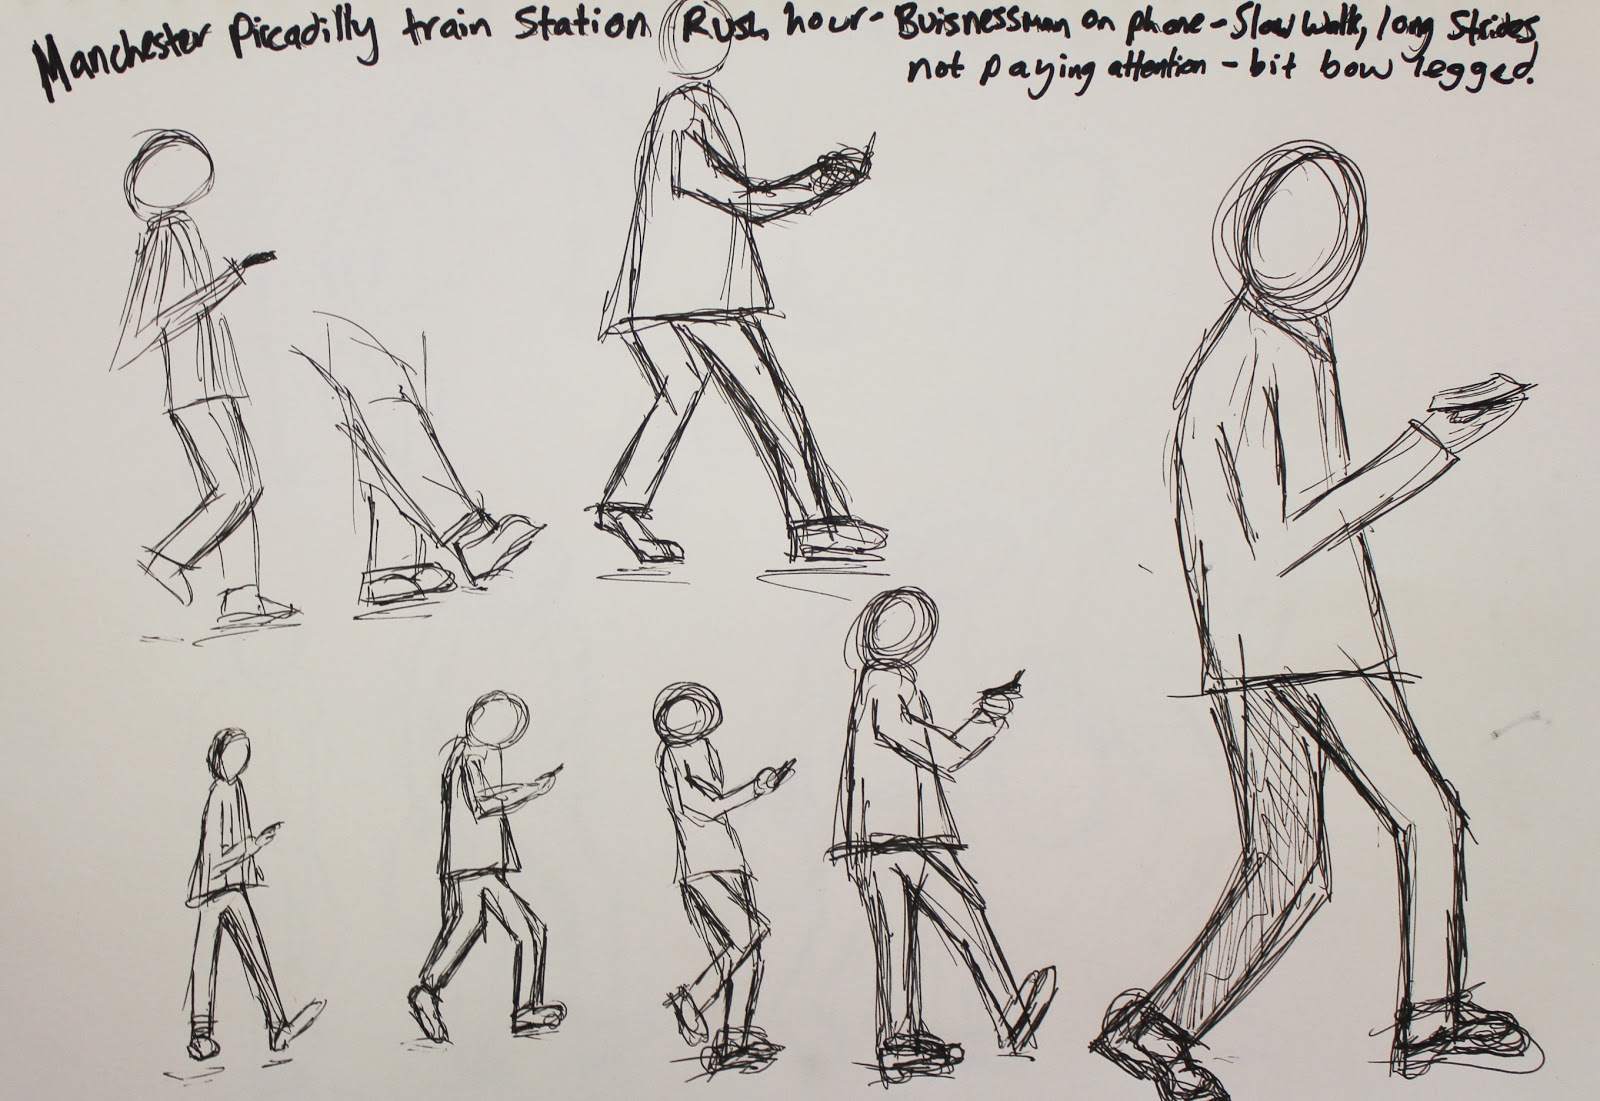 Manchester Piccadilly train Station Rush hour - Buisnessman on phone - Slow walk, long Strides,
not paying attention - bit bow legged.